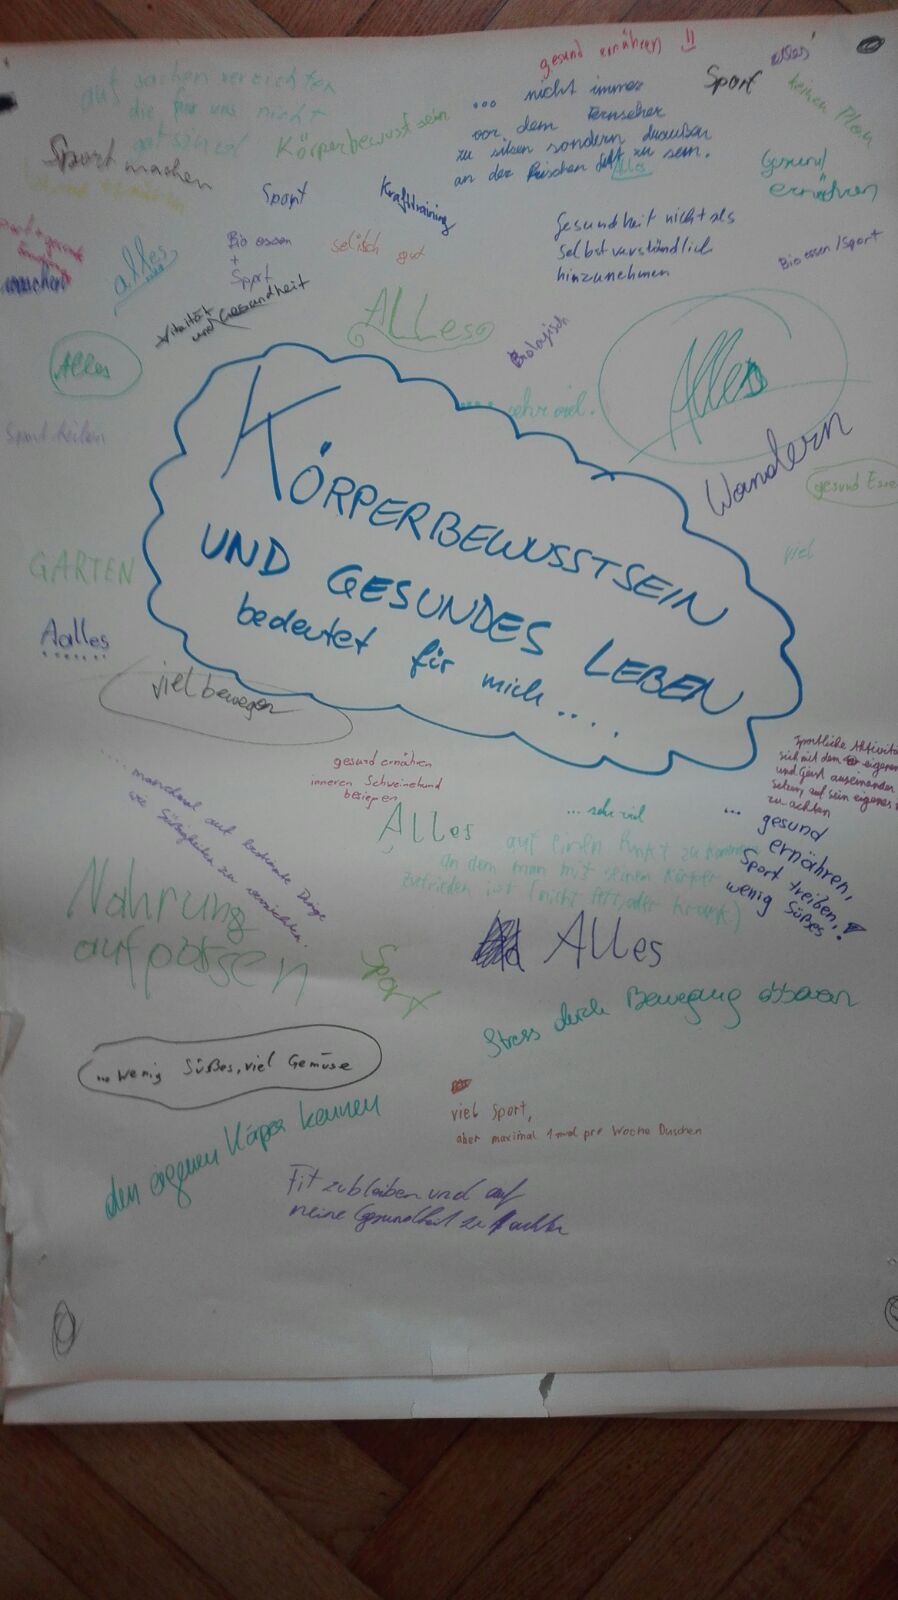 gesund ernähren !!
alles
Sport
keinen Plan
auf sachen verzichten
die für uns nicht
gut sind
Körperbewusstsein
... nicht immer
vor dem Fernseher
zu sitzen sondern draußen
an der frischen Luft zu sein.
Alles
Gesund
ernähren
Sport machen
Sport
Krafttraining
Gesundheit nicht als
selbstverständlich
hinzunehmen
Bio essen / Sport
machen
alles
Bio essen
+
Sport
selisch gut
Vitalität
und Gesundheit
ALLes
Biologisch
Alles
Alles
.... sehr viel.
Wandern
gesund Esse
KÖRPERBEWUSSTSEIN
UND GESUNDES LEBEN
bedeutet für mich ...
viel
GARTEN
Aalles
viel bewegen
gesund ernähren
inneren Schweinehund
besiegen
Sportliche Aktivitä
sich mit dem eigenen
und Geist auseinander
setzen, auf sein eigenes
zu achten
... manchmal auf bestimmte Dinge
wie Süßigkeiten zu verzichten.
Alles
... sehr viel
... gesund
ernähren,
Sport treiben,
wenig Süßes !
auf einen Punkt zu kommen
an dem man mit seinem Körper
zufrieden ist (nicht fett oder krank)
Nahrung
aufpassen
Sport
Alles
Stress durch Bewegung abbauen
... wenig Süßes, viel Gemüse
viel Sport,
aber maximal 1 mal pro Woche Duschen
den eigenen Körper kennen
Fit zu bleiben und auf
meine Gesundheit zu achten